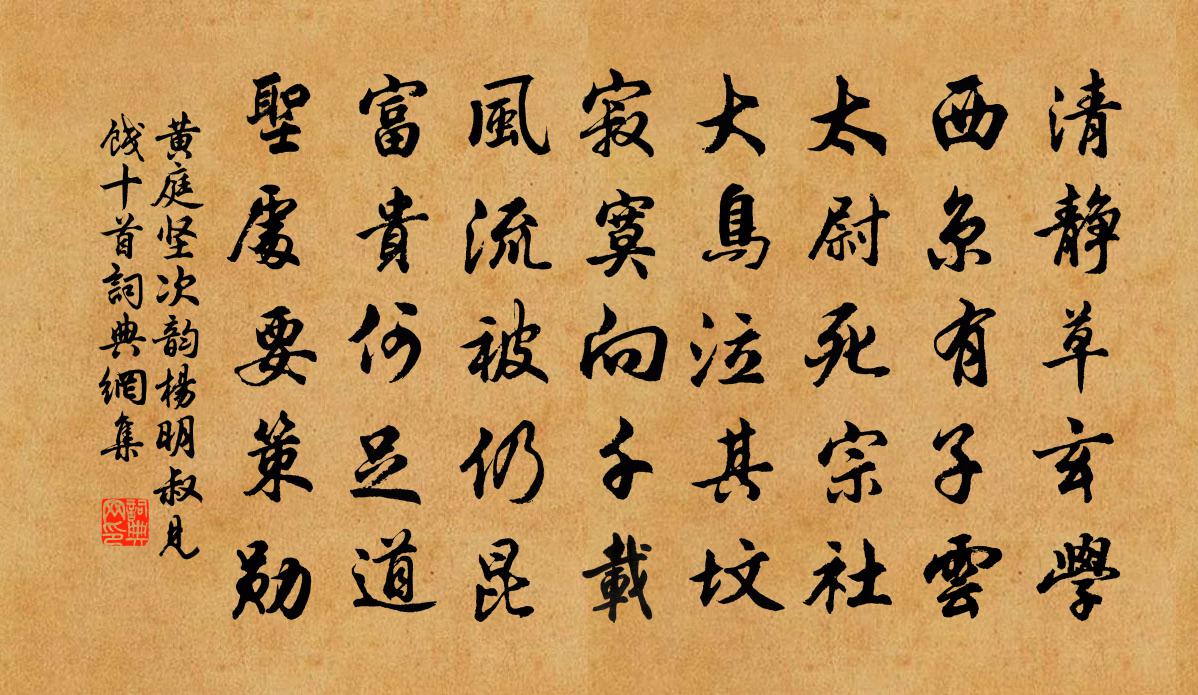 清靜草玄學
西京有子雲
太尉死宗社
大鳥泣其墳
寂寞向千載
風流被仍昆
富貴何足道
聖處要策勛
黄庭坚次韵楊明叔見
餞十首詞典網集
詞典
网印